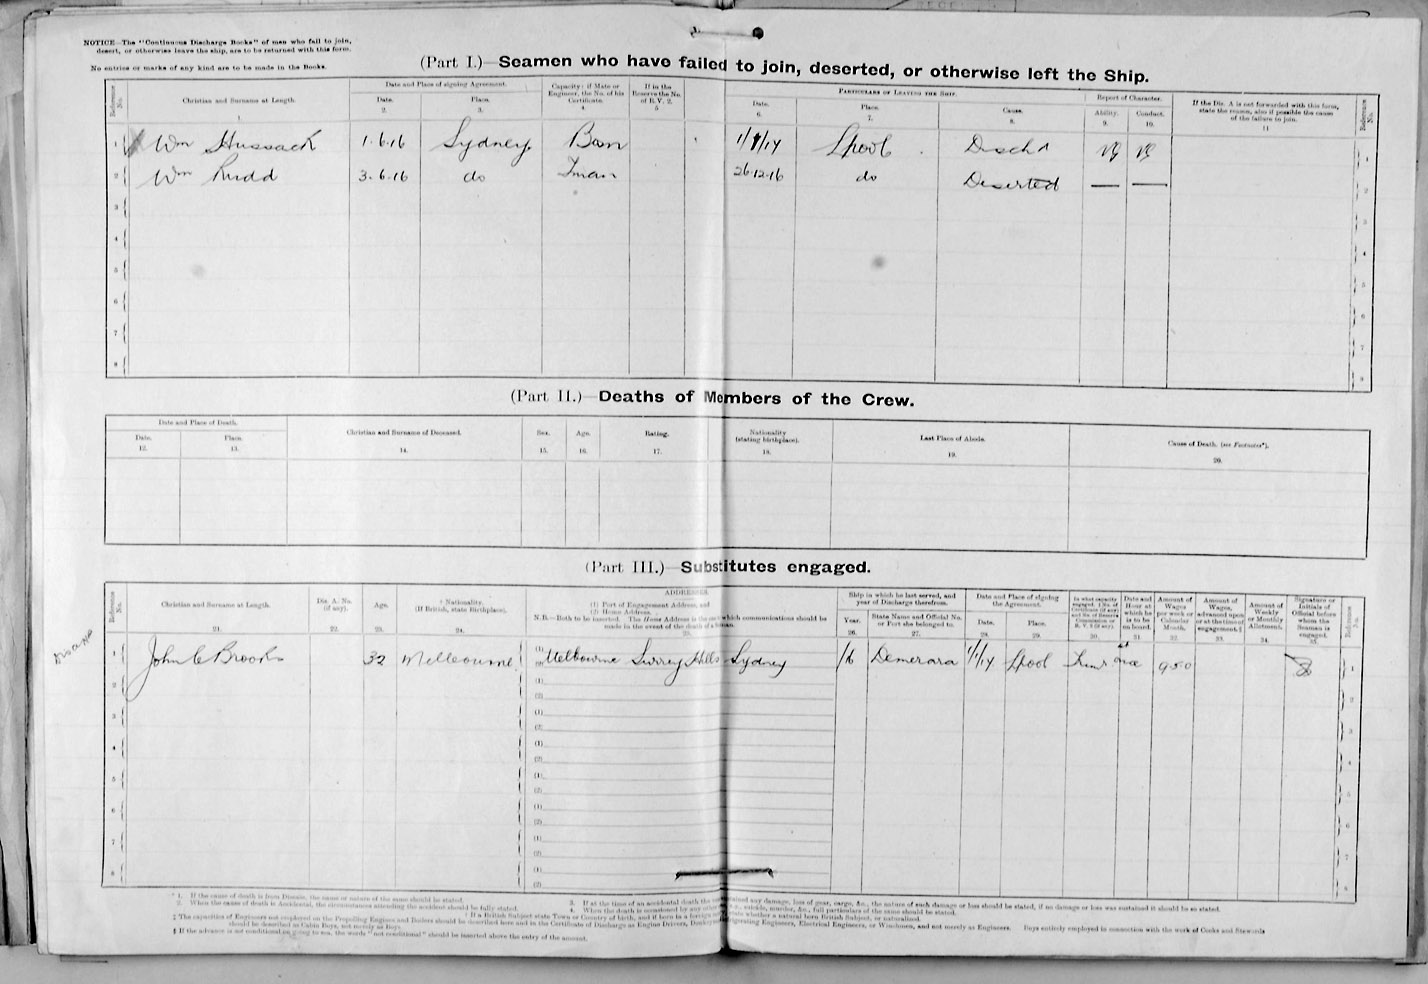 NOTICE—The "Continuous Discharge Books" of men who fail to join,
desert, or otherwise leave the ship, are to be returned with this form.
No entries or marks of any kind are to be made in the Books.
(Part I.)—Seamen who have failed to join, deserted, or otherwise left the Ship.
Reference No. Christian and Surname at Length. 1. Date and Place of signing Agreement. Date. 2. Place. 3. Capacity: if Mate or Engineer, the No. of his Certificate. 4. If in the Reserve the No. of R.V. 2. 5 Particulars of Leaving the Ship. Date. 6. Place. 7. Cause. 8. Report of Character. Ability. 9. Conduct. 10. If the Dis. A is not forwarded with this form, state the reason, also if possible the cause of the failure to join. 11 Reference No.
1 Wm Hussack 1.6.16 Sydney Bosn 1/1/17 Lpool Dischd VG VG 1
2 Wm Rudd 3.6.16 do Fman 26.12.16 do Deserted — — 2
3 3
4 4
5 5
6 6
7 7
8 8
(Part II.)—Deaths of Members of the Crew.
Date and Place of Death. Date. 12. Place. 13. Christian and Surname of Deceased. 14. Sex. 15. Age. 16. Rating. 17. Nationality (stating birthplace). 18. Last Place of Abode. 19. Cause of Death. (see Footnotes*). 20.
(Part III.)—Substitutes engaged.
Reference No. Christian and Surname at Length. 21. Dis. A. No. (if any). 22. Age. 23. † Nationality. (If British, state Birthplace). 24. ADDRESSES. (1) Port of Engagement Address, and (2) Home Address. N.B.—Both to be inserted. The Home Address is the one to which communications should be made in the event of the death of a Seaman. 25. Ship in which he last served, and year of Discharge therefrom. Year. 26. State Name and Official No. or Port she belonged to. 27. Date and Place of signing the Agreement. Date. 28. Place. 29. In what capacity engaged, 30. Date and Hour at which he is to be on board. 31 Amount of Wages per week or Calendar Month. 32. Amount of Wages, advanced upon or at the time of engagement.§ 33. Amount of Weekly or Monthly Allotment. 34. Signature or Initials of Official before whom the Seaman is engaged. 35. Reference No.
1 John C Brooks 32 Melbourne (1) Melbourne Surrey Hills Sydney 16 Demerara 1/1/17 Lpool at once 9 50 1
2 (1) (2) 2
3 (1) (2) 3
4 (1) (2) 4
5 (1) (2) 5
6 (1) (2) 6
7 (1) (2) 7
8 (1) (2) 8
* 1. If the cause of death is from Disease, the cause or nature of the same should be stated.
2. When the cause of death is Accidental, the circumstances attending the accident should be fully stated.
† If a British Subject state Town or Country of birth, and if born in a foreign
‡ The capacities of Engineers not employed on the Propelling Engines and Boilers should be described here and in the Certificate of Discharge as Engine Drivers, Electrical Engineers, or Winchmen, and not merely as Engineers. Boys entirely employed in connection with the work of Cooks and Stewards
should be described as Cabin Boys, not merely as Boys.
§ If the advance is not conditional on going to sea, the words "not conditional" should be inserted above the entry of the amount.